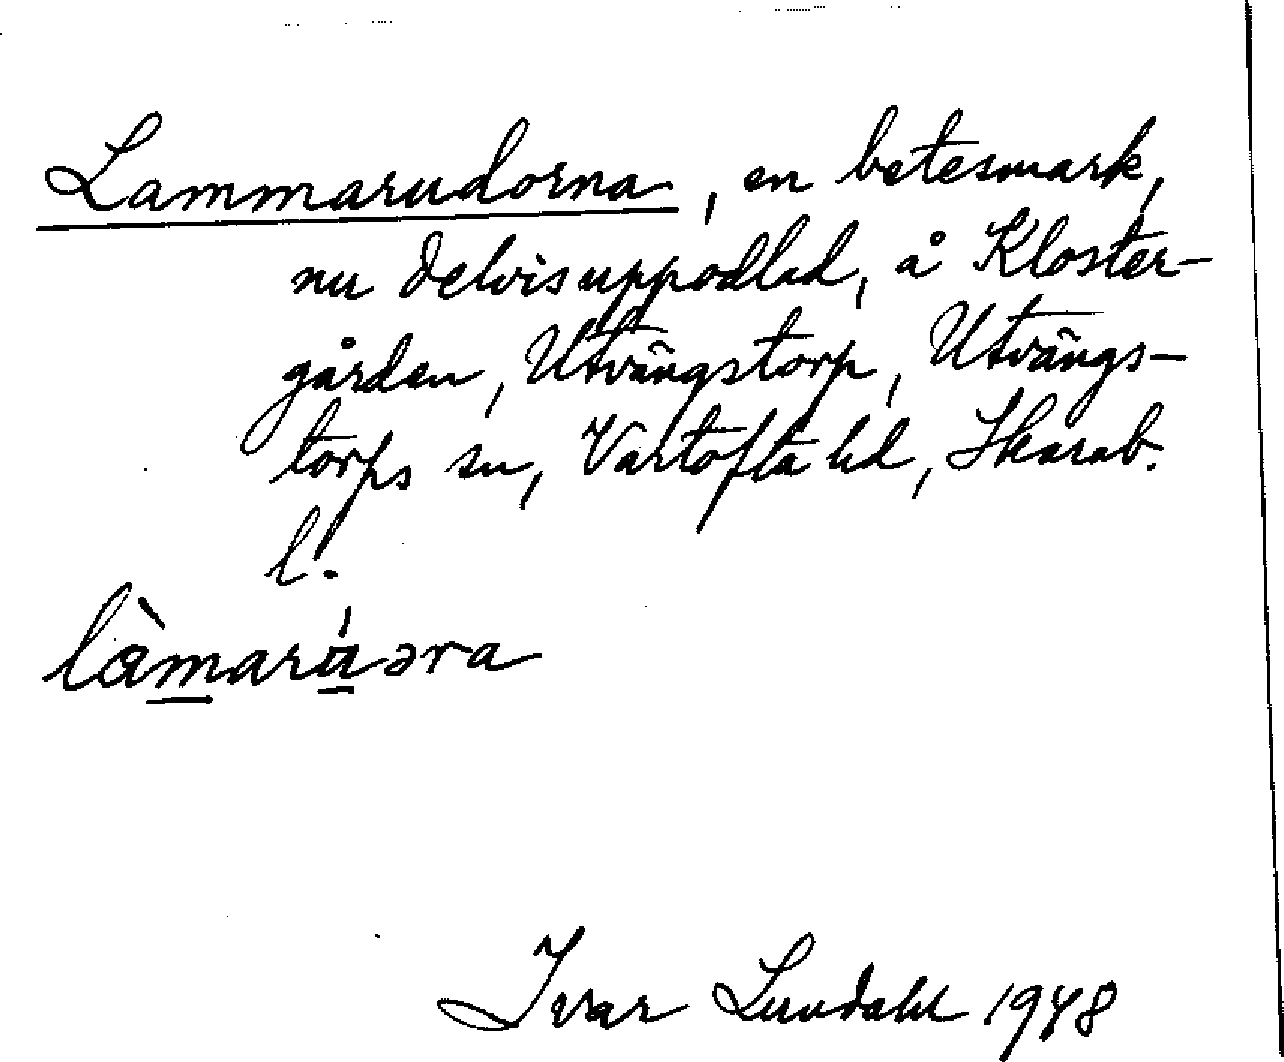 Lammarudorna, en betesmark,
nu delvis uppodlad, å Kloster-
gården, Utvängstorp, Utvängs-
torps sn, Vartofta hd, Skarab.
l.
làmarúəra
Ivar Lundahl 1948